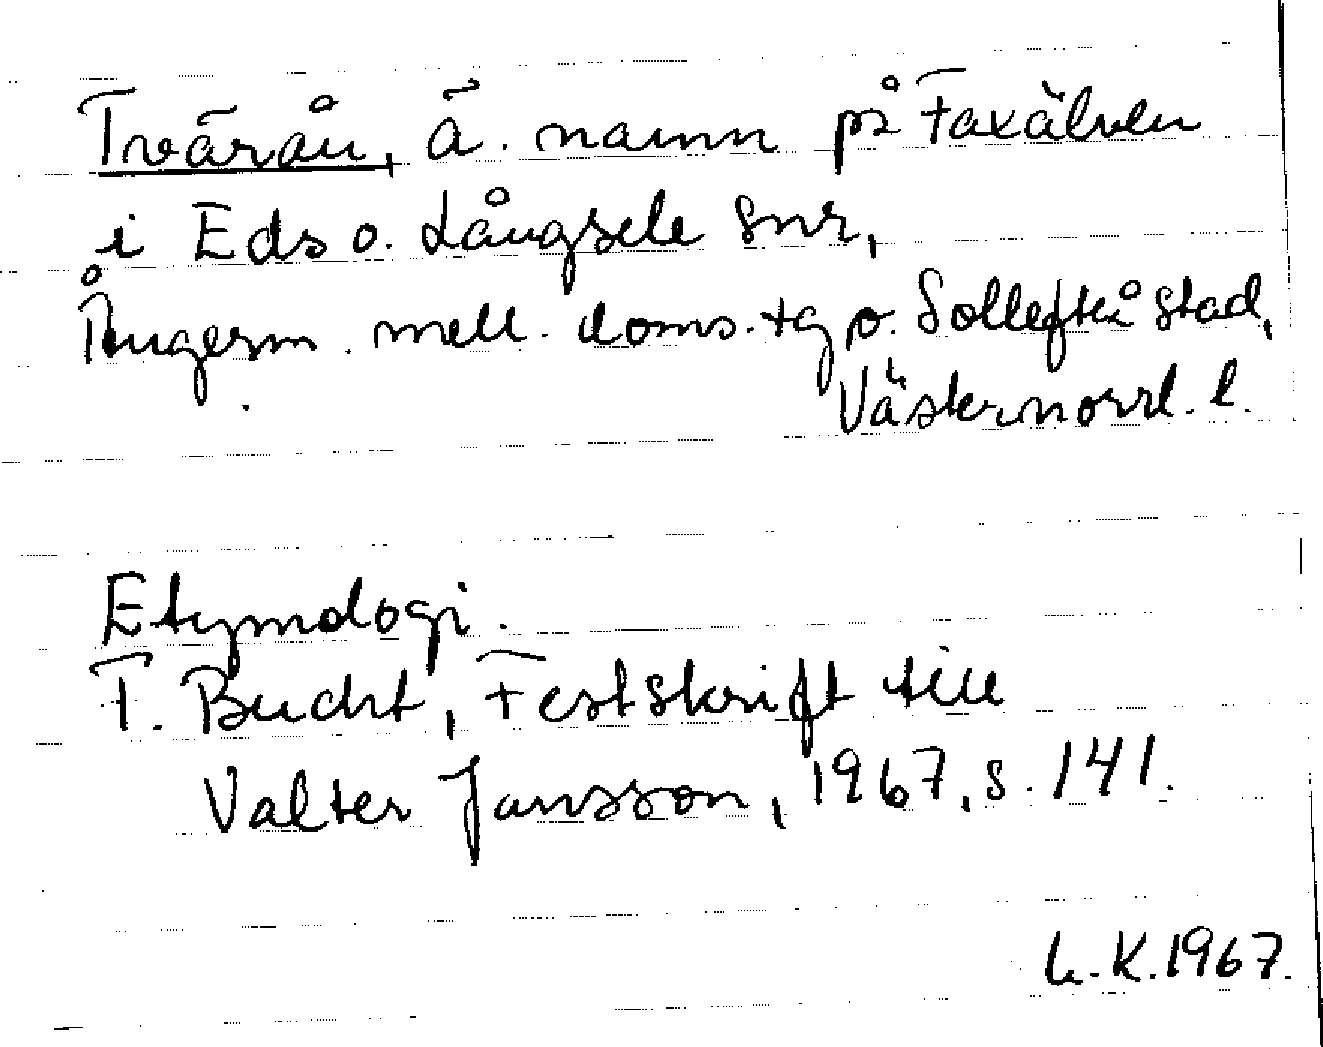 Tvärån, ä. namn på Faxälven
i Eds o. Långsele snr,
Ångerm. mell. doms. tg o. Sollefteå stad,
Västernorrl. l.
Etymologi.
T. Bucht, Festskrift till
Valter Jansson, 1967, s. 141.
L.K. 1967.